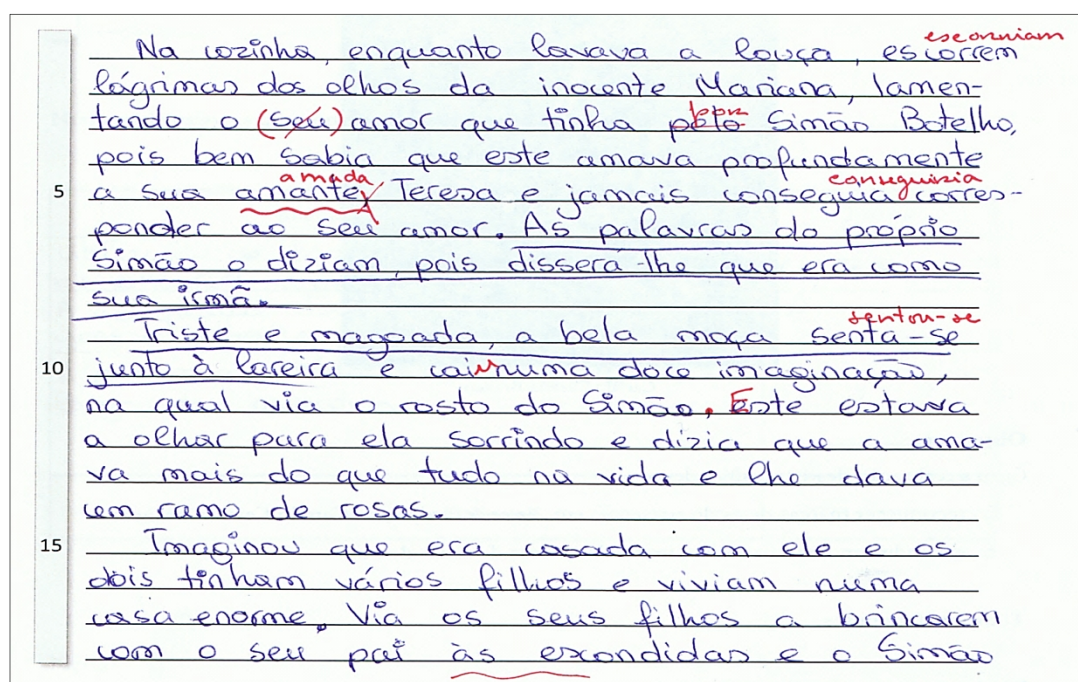 escorriam
Na cozinha, enquanto lavava a louça, escorrem
lágrimas dos olhos da inocente Mariana, lamen-
tando o (seu) amor que tinha pelo por Simão Botelho,
pois bem sabia que este amava profundamente
amada conseguiria
5 a sua amante, Teresa e jamais conseguia corres-
ponder ao seu amor. As palavras do próprio
Simão o diziam, pois dissera-lhe que era como
sua irmã.
sentou-se
Triste e magoada, a bela moça senta-se
10 junto à lareira e caiu numa doce imaginação,
na qual via o rosto do Simão. Este estava
a olhar para ela sorrindo e dizia que a ama-
va mais do que tudo na vida e lhe dava
um ramo de rosas.
15 Imaginou que era casada com ele e os
dois tinham vários filhos e viviam numa
casa enorme. Via os seus filhos a brincarem
com o seu pai às escondidas e o Simão